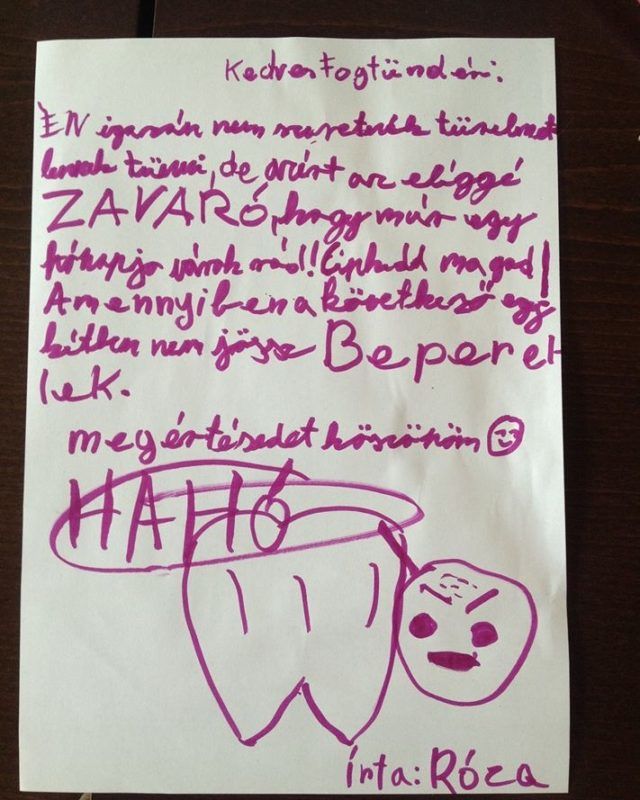 Kedves Fogtündér:
ÉN igazán nem szeretnék türelmet
lenek tünni, de azért az eléggé
ZAVARÓ, hogy már egy
hónapja várok rád!! Cipkedd magad!
Amennyiben a következő egy
hétben nem jössz Beperel
lek.
megértésedet köszönöm
HAHÓ
írta: Róza